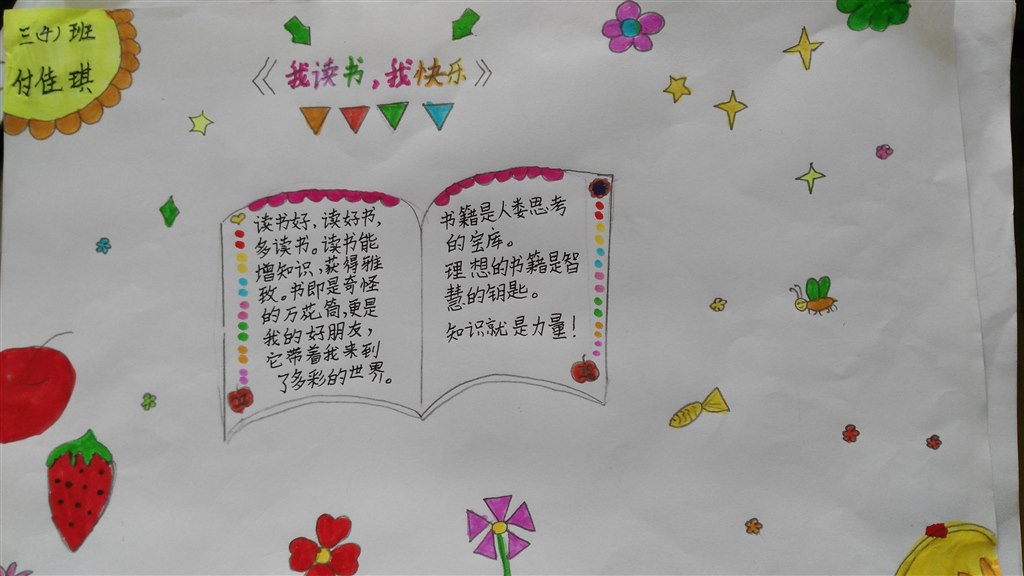 三(4)班
付佳琪
《我读书,我快乐》
读书好,读好书,
多读书。读书能
增知识,获得雅
致。书即是奇怪
的万花筒,更是
我的好朋友,
它带着我来到
了多彩的世界。
书籍是人娄思考
的宝库。
理想的书籍是智
慧的钥匙。
知识就是力量!